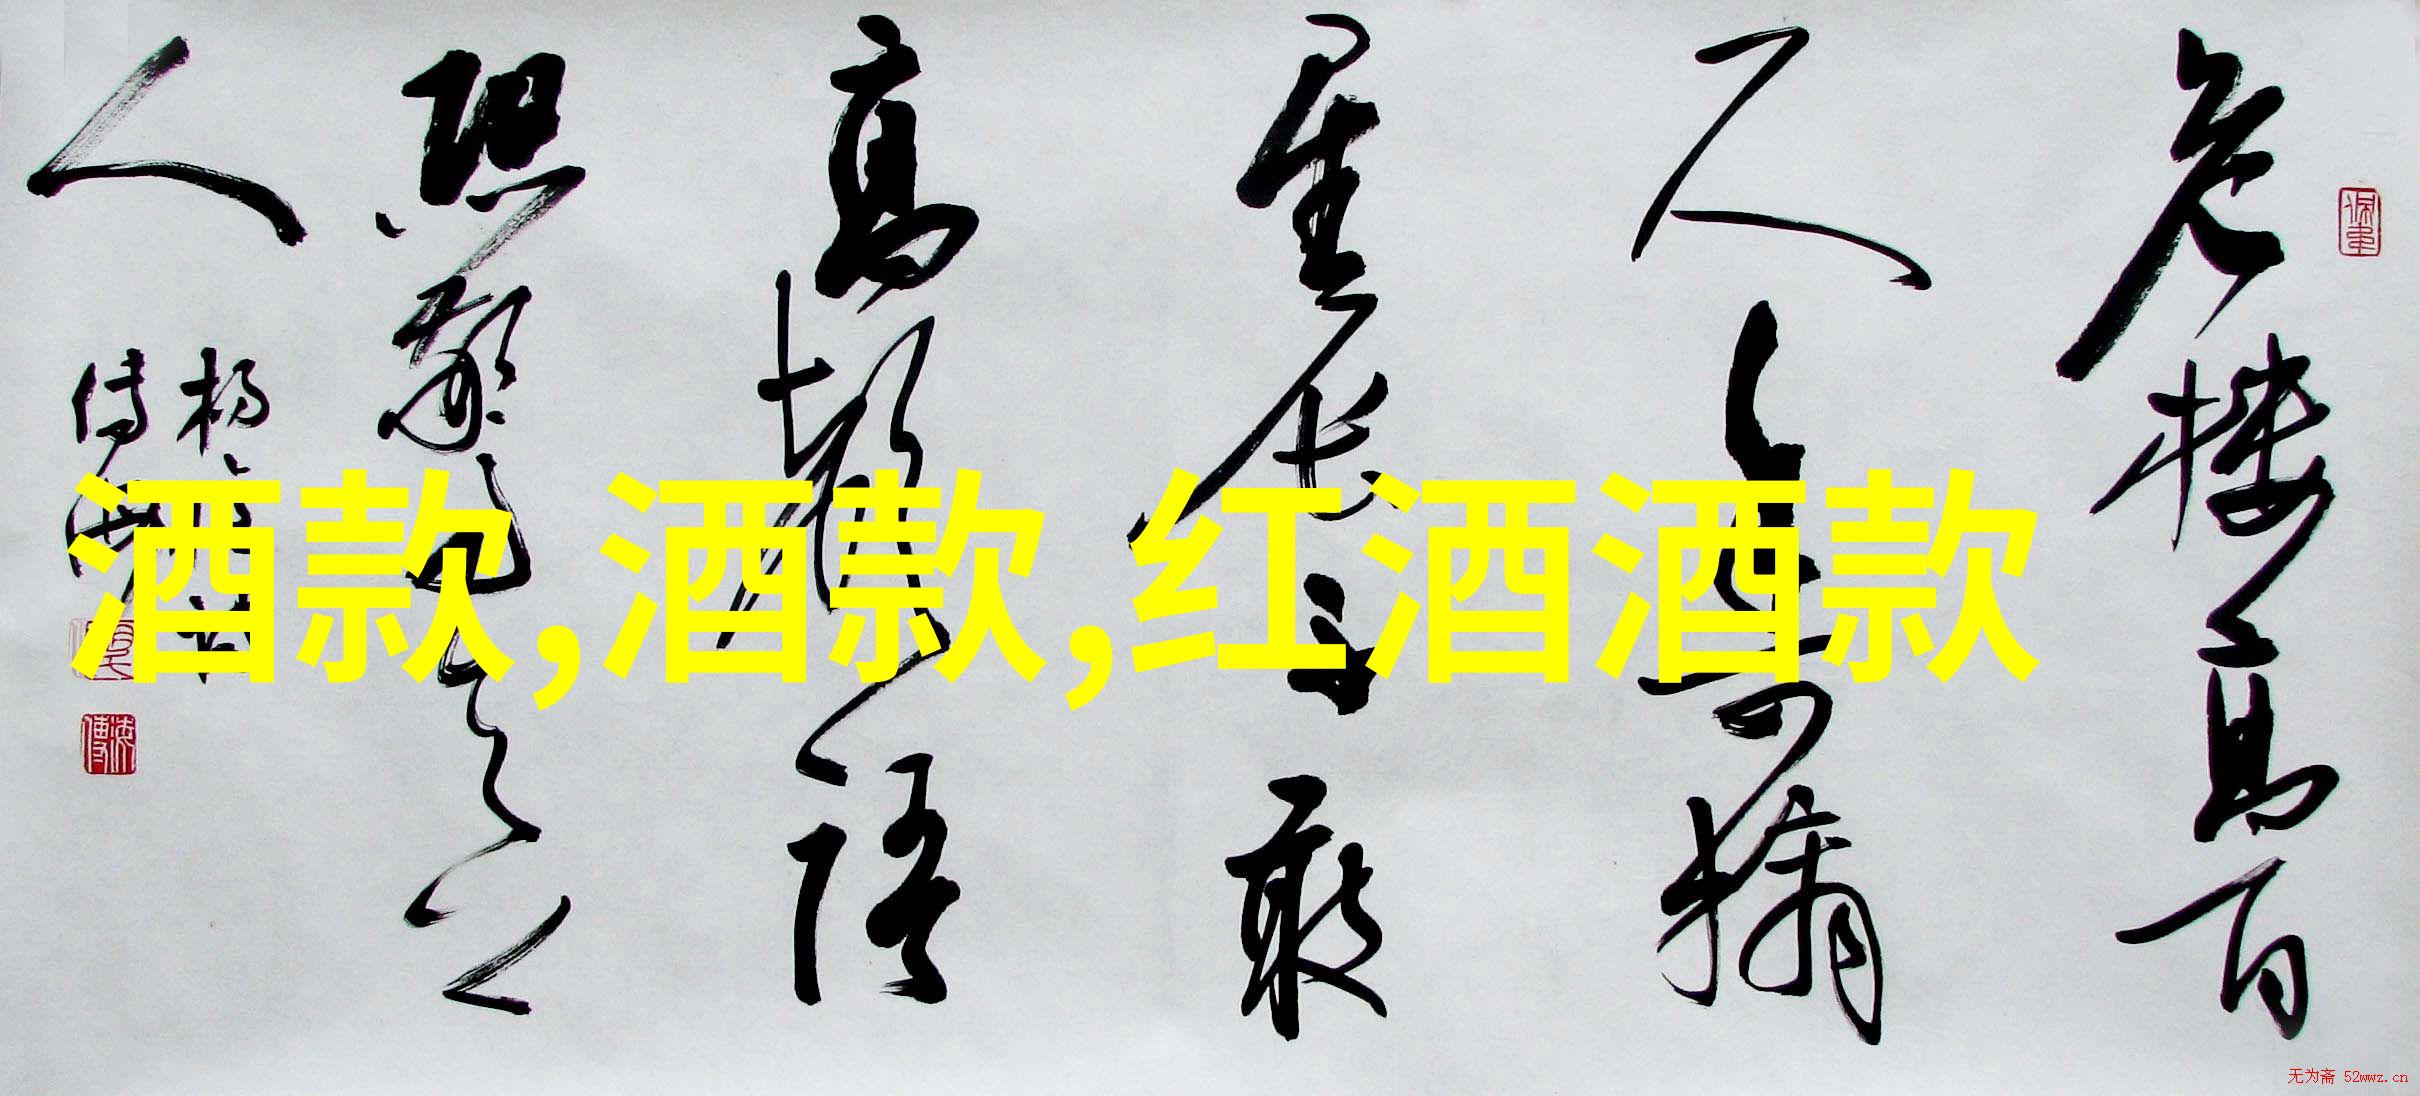 危樓高百
尺手可摘
星辰不敢
高聲語
恐驚天上
人
酒款,酒款,红酒酒款
无为斋 52wwz.cn